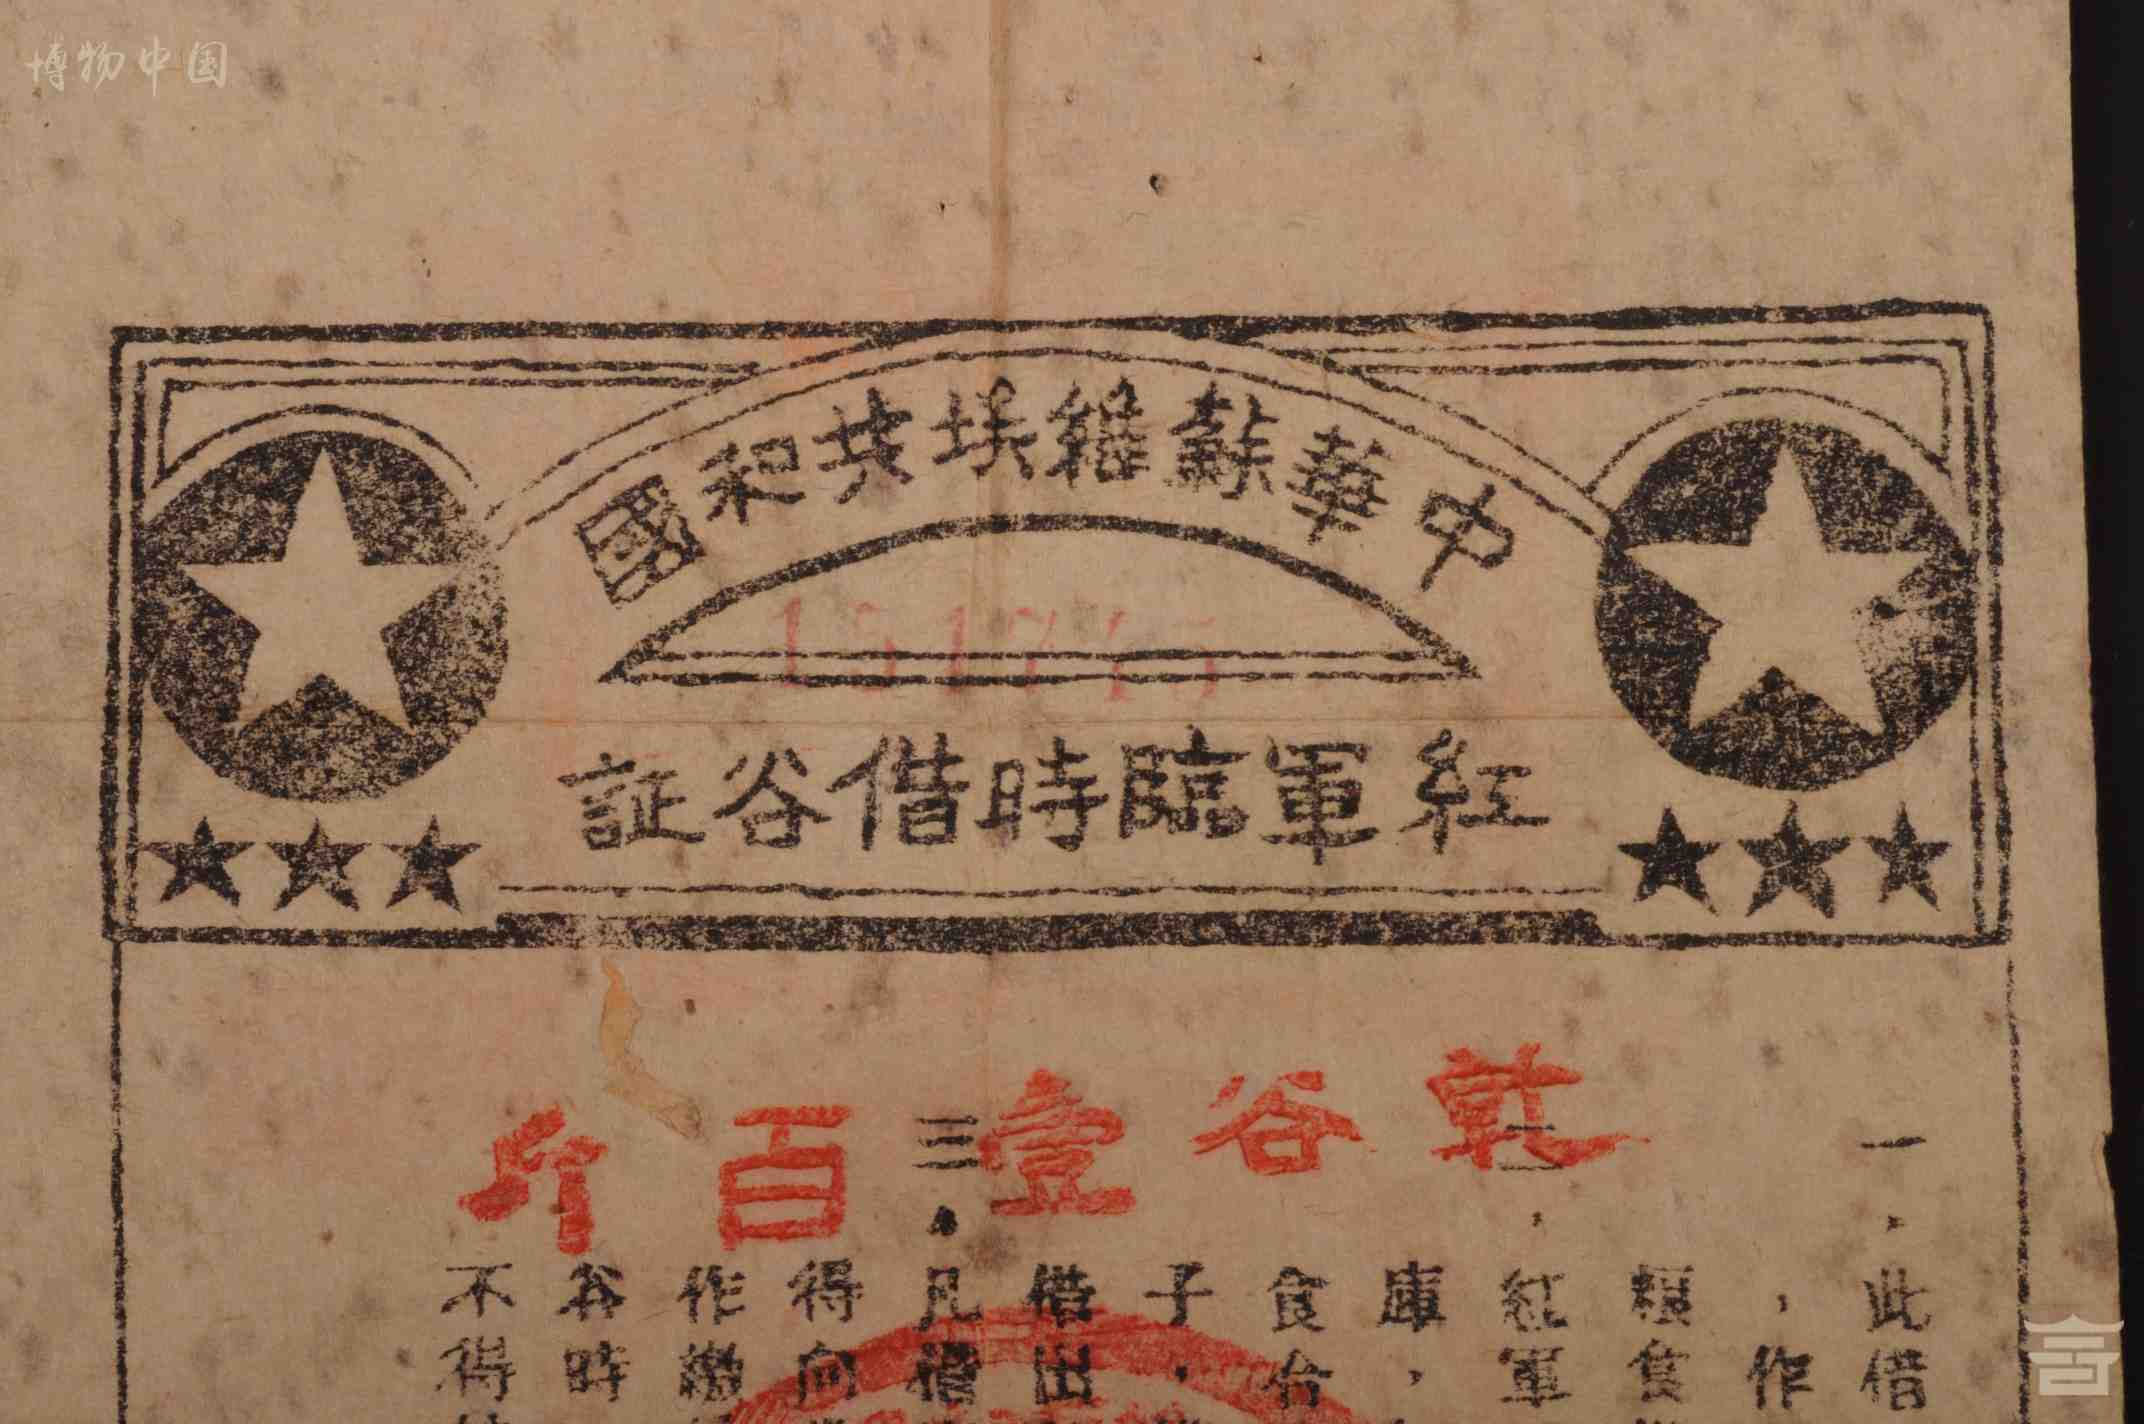 博物中国
中華蘇維埃共和國
紅軍臨時借谷証
乾谷壹百斤
一．此借
，作
糧食
二．紅軍
庫，
食合
子，
借出
三．凡借
得向
作繳
谷時
不得